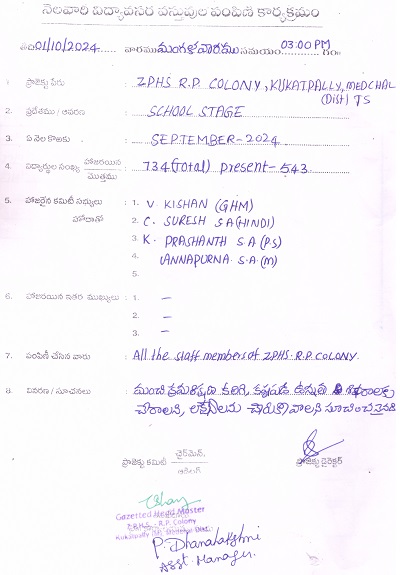 నెలవారి విద్యావసర వస్తువుల పంపిణి కార్యక్రమం
తేది 01/10/2024 వారము మంగళవారము సమయం 03:00 PM గం
1. ప్రాజెక్టు పేరు : ZPHS R.P. COLONY, KUKATPALLY, MEDCHAL
(Dist) TS
2. ప్రదేశము / ఆవరణ : SCHOOL STAGE
3. ఏ నెల కొఱకు : SEPTEMBER-2024
4. విద్యార్థుల సంఖ్య హాజరయిన / మొత్తము : 734 (Total) present-543
5. హాజరైన కమిటీ సభ్యులు : 1. V. KISHAN (GHM)
హోదాతో 2. C. SURESH S A (HINDI)
3. K. PRASHANTH S.A (PS)
4. ANNAPURNA S.A. (M)
5.
6. హాజరయిన ఇతర ముఖ్యులు : 1. –
2. –
3. –
7. పంపిణీ చేసిన వారు : All the staff members of ZPHS. R.P. COLONY
8. వివరణ / సూచనలు : మంచి క్రమశిక్షణ కలిగి,
చేరాలని,
ఛైర్మెన్,
ప్రాజెక్టు కమిటీ ప్రాజెక్టు డైరెక్టర్
Gazetted Head Master
Z.P.H.S. R.P. Colony
Kukatpally (M), Medchal Dist.
P. Dhanalakshmi
Asst. Manager.